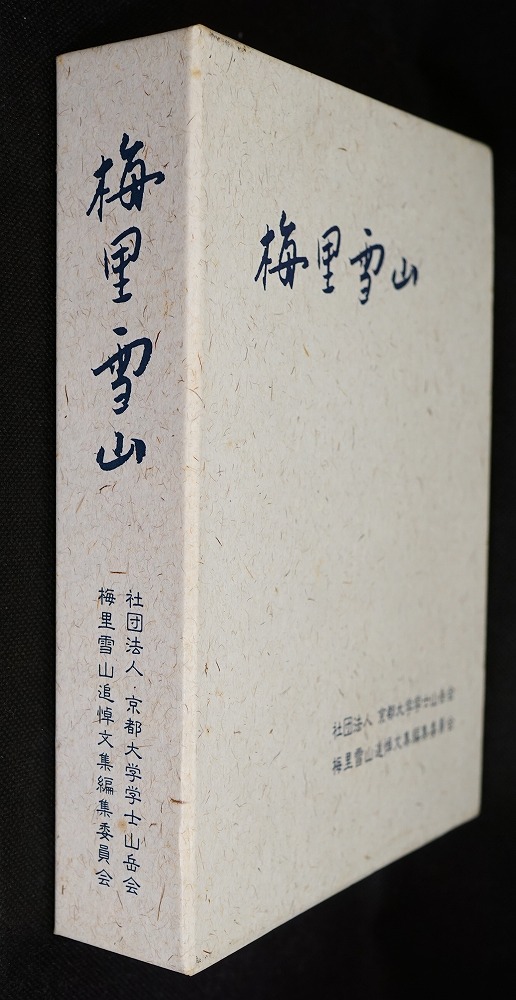 梅里雪山
社団法人・京都大学学士山岳会
梅里雪山追悼文集編集委員会
梅里雪山
社団法人 京都大学学士山岳会
梅里雪山追悼文集編集委員会